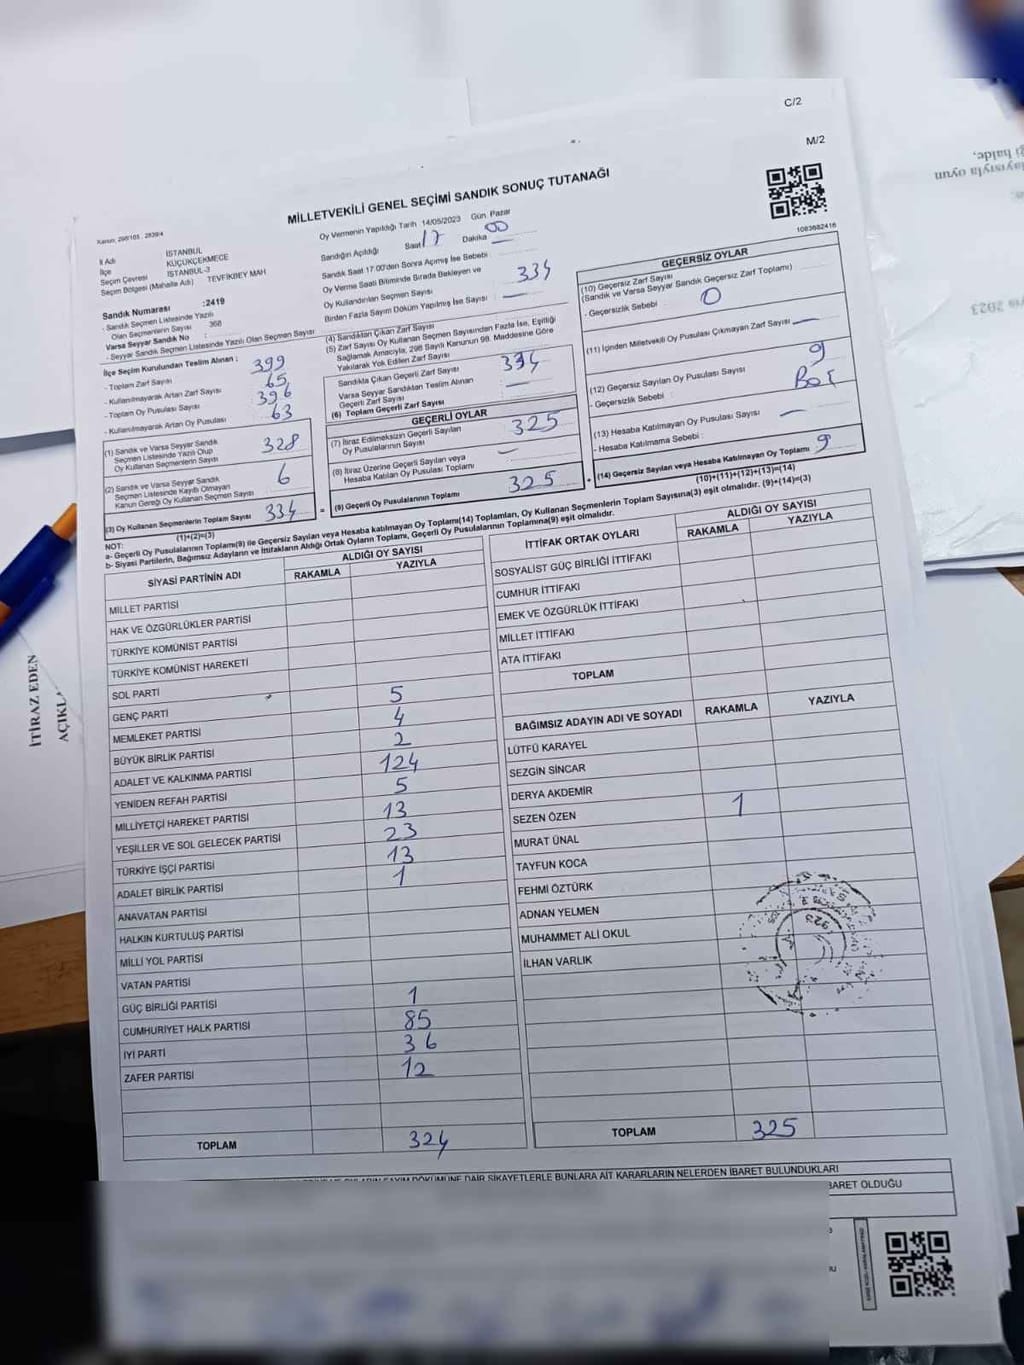 C/2
M/2
MİLLETVEKİLİ GENEL SEÇİMİ SANDIK SONUÇ TUTANAĞI
1083682416
İl Adı İSTANBUL
İlçe KÜÇÜKÇEKMECE
Seçim Çevresi İSTANBUL-3
Seçim Bölgesi (Mahalle Adı) TEVFİKBEY MAH
Sandık Numarası :2419
- Sandık Seçmen Listesinde Yazılı
Olan Seçmenlerin Sayısı : 368
Varsa Seyyar Sandık No :
- Seyyar Sandık Seçmen Listesinde Yazılı Olan Seçmen Sayısı
İlçe Seçim Kurulundan Teslim Alınan :
- Toplam Zarf Sayısı 399
- Kullanılmayarak Artan Zarf Sayısı 65
- Toplam Oy Pusulası Sayısı 396
- Kullanılmayarak Artan Oy Pusulası 63
(1) Sandık ve Varsa Seyyar Sandık
Seçmen Listesinde Yazılı Olup
Oy Kullanan Seçmenlerin Sayısı 328
(2) Sandık ve Varsa Seyyar Sandık
Seçmen Listesinde Kayıtlı Olmayan
Kanun Gereği Oy Kullanan Seçmen Sayısı 6
(3) Oy Kullanan Seçmenlerin Toplam Sayısı 334
(1)+(2)=(3)
Oy Vermenin Yapıldığı Tarih 14/05/2023 Gün. Pazar
Sandığın Açıldığı Saat 17 Dakika 00
Sandık Saat 17:00'den Sonra Açılmış İse Sebebi :
Oy Verme Saati Bitiminde Sırada Bekleyen ve
Oy Kullandırılan Seçmen Sayısı 334
Birden Fazla Sayım Döküm Yapılmış İse Sayısı :
(4) Sandıktan Çıkan Zarf Sayısı
(5) Zarf Sayısı Oy Kullanan Seçmen Sayısından Fazla İse, Eşitliği
Sağlamak Amacıyla, 298 Sayılı Kanunun 98. Maddesine Göre
Yakılarak Yok Edilen Zarf Sayısı
Sandıkta Çıkan Geçerli Zarf Sayısı 334
Varsa Seyyar Sandıktan Teslim Alınan
Geçerli Zarf Sayısı
(6) Toplam Geçerli Zarf Sayısı
GEÇERLİ OYLAR
(7) İtiraz Edilmeksizin Geçerli Sayılan
Oy Pusulalarının Sayısı 325
(8) İtiraz Üzerine Geçerli Sayılan veya
Hesaba Katılan Oy Pusulası Toplamı
= (9) Geçerli Oy Pusulalarının Toplamı 325
GEÇERSİZ OYLAR
(10) Geçersiz Zarf Sayısı
(Sandık ve Varsa Seyyar Sandık Geçersiz Zarf Toplamı)
- Geçersizlik Sebebi : 0
(11) İçinden Milletvekili Oy Pusulası Çıkmayan Zarf Sayısı
(12) Geçersiz Sayılan Oy Pusulası Sayısı 9
- Geçersizlik Sebebi :
(13) Hesaba Katılmayan Oy Pusulası Sayısı
- Hesaba Katılmama Sebebi :
+ (14) Geçersiz Sayılan veya Hesaba Katılmayan Oy Toplamı 9
(10)+(11)+(12)+(13)=(14)
NOT:
a- Geçerli Oy Pusulalarının Toplamı(9) ile Geçersiz Sayılan veya Hesaba katılmayan Oy Toplamı(14) Toplamları, Oy Kullanan Seçmenlerin Toplam Sayısına(3) eşit olmalıdır. (9)+(14)=(3)
b- Siyasi Partilerin, Bağımsız Adayların ve İttifakların Aldığı Ortak Oyların Toplamı, Geçerli Oy Pusulalarının Toplamına(9) eşit olmalıdır.
SİYASİ PARTİNİN ADI ALDIĞI OY SAYISI
RAKAMLA YAZIYLA
MİLLET PARTİSİ
HAK VE ÖZGÜRLÜKLER PARTİSİ
TÜRKİYE KOMÜNİST PARTİSİ
TÜRKİYE KOMÜNİST HAREKETİ
SOL PARTİ
GENÇ PARTİ 5
MEMLEKET PARTİSİ 4
BÜYÜK BİRLİK PARTİSİ 2
ADALET VE KALKINMA PARTİSİ 124
YENİDEN REFAH PARTİSİ 5
MİLLİYETÇİ HAREKET PARTİSİ 13
YEŞİLLER VE SOL GELECEK PARTİSİ 23
TÜRKİYE İŞÇİ PARTİSİ 13
ADALET BİRLİK PARTİSİ 1
ANAVATAN PARTİSİ
HALKIN KURTULUŞ PARTİSİ
MİLLİ YOL PARTİSİ
VATAN PARTİSİ
GÜÇ BİRLİĞİ PARTİSİ 1
CUMHURİYET HALK PARTİSİ 85
İYİ PARTİ 36
ZAFER PARTİSİ 12
TOPLAM 324
İTTİFAK ORTAK OYLARI ALDIĞI OY SAYISI
RAKAMLA YAZIYLA
SOSYALİST GÜÇ BİRLİĞİ İTTİFAKI
CUMHUR İTTİFAKI
EMEK VE ÖZGÜRLÜK İTTİFAKI
MİLLET İTTİFAKI
ATA İTTİFAKI
TOPLAM
BAĞIMSIZ ADAYIN ADI VE SOYADI RAKAMLA YAZIYLA
LÜTFÜ KARAYEL
SEZGİN SİNCAR
DERYA AKDEMİR
SEZEN ÖZEN 1
MURAT ÜNAL
TAYFUN KOCA
FEHMİ ÖZTÜRK
ADNAN YELMEN
MUHAMMET ALİ OKUL
İLHAN VARLIK
TOPLAM 325
DÖKÜMÜNE DAİR ŞİKAYETLERLE BUNLARA AİT KARARLARIN NELERDEN İBARET BULUNDUKLARI
BARET OLDUĞU
İTİRAZ EDEN